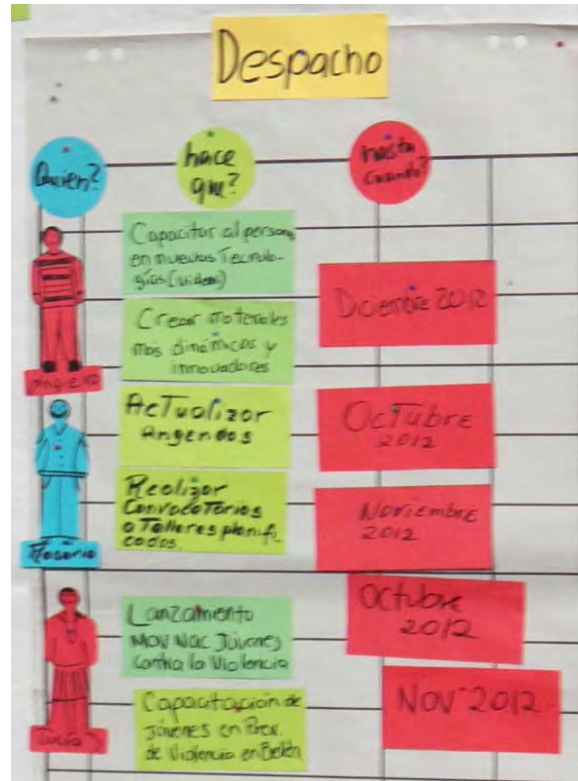 Despacho
Quien?
hace
que?
hasta
cuando?
Capacitar al personal
en nuevas Tecnolo-
gías (videos)
Crear materiales
mas dinámicos y
innovadores
Diciembre 2012
AcTualizar
Angendas
OcTubre
2012
Realizar
ConvocaTorias
a Talleres planifi-
cados.
Noviembre
2012
Rosario
Lanzamiento
MOV Nac Jóvenes
contra la Violencia
OcTubre
2012
Capacitación de
Jóvenes en Prev.
de Violencia en Belén
NOV 2012